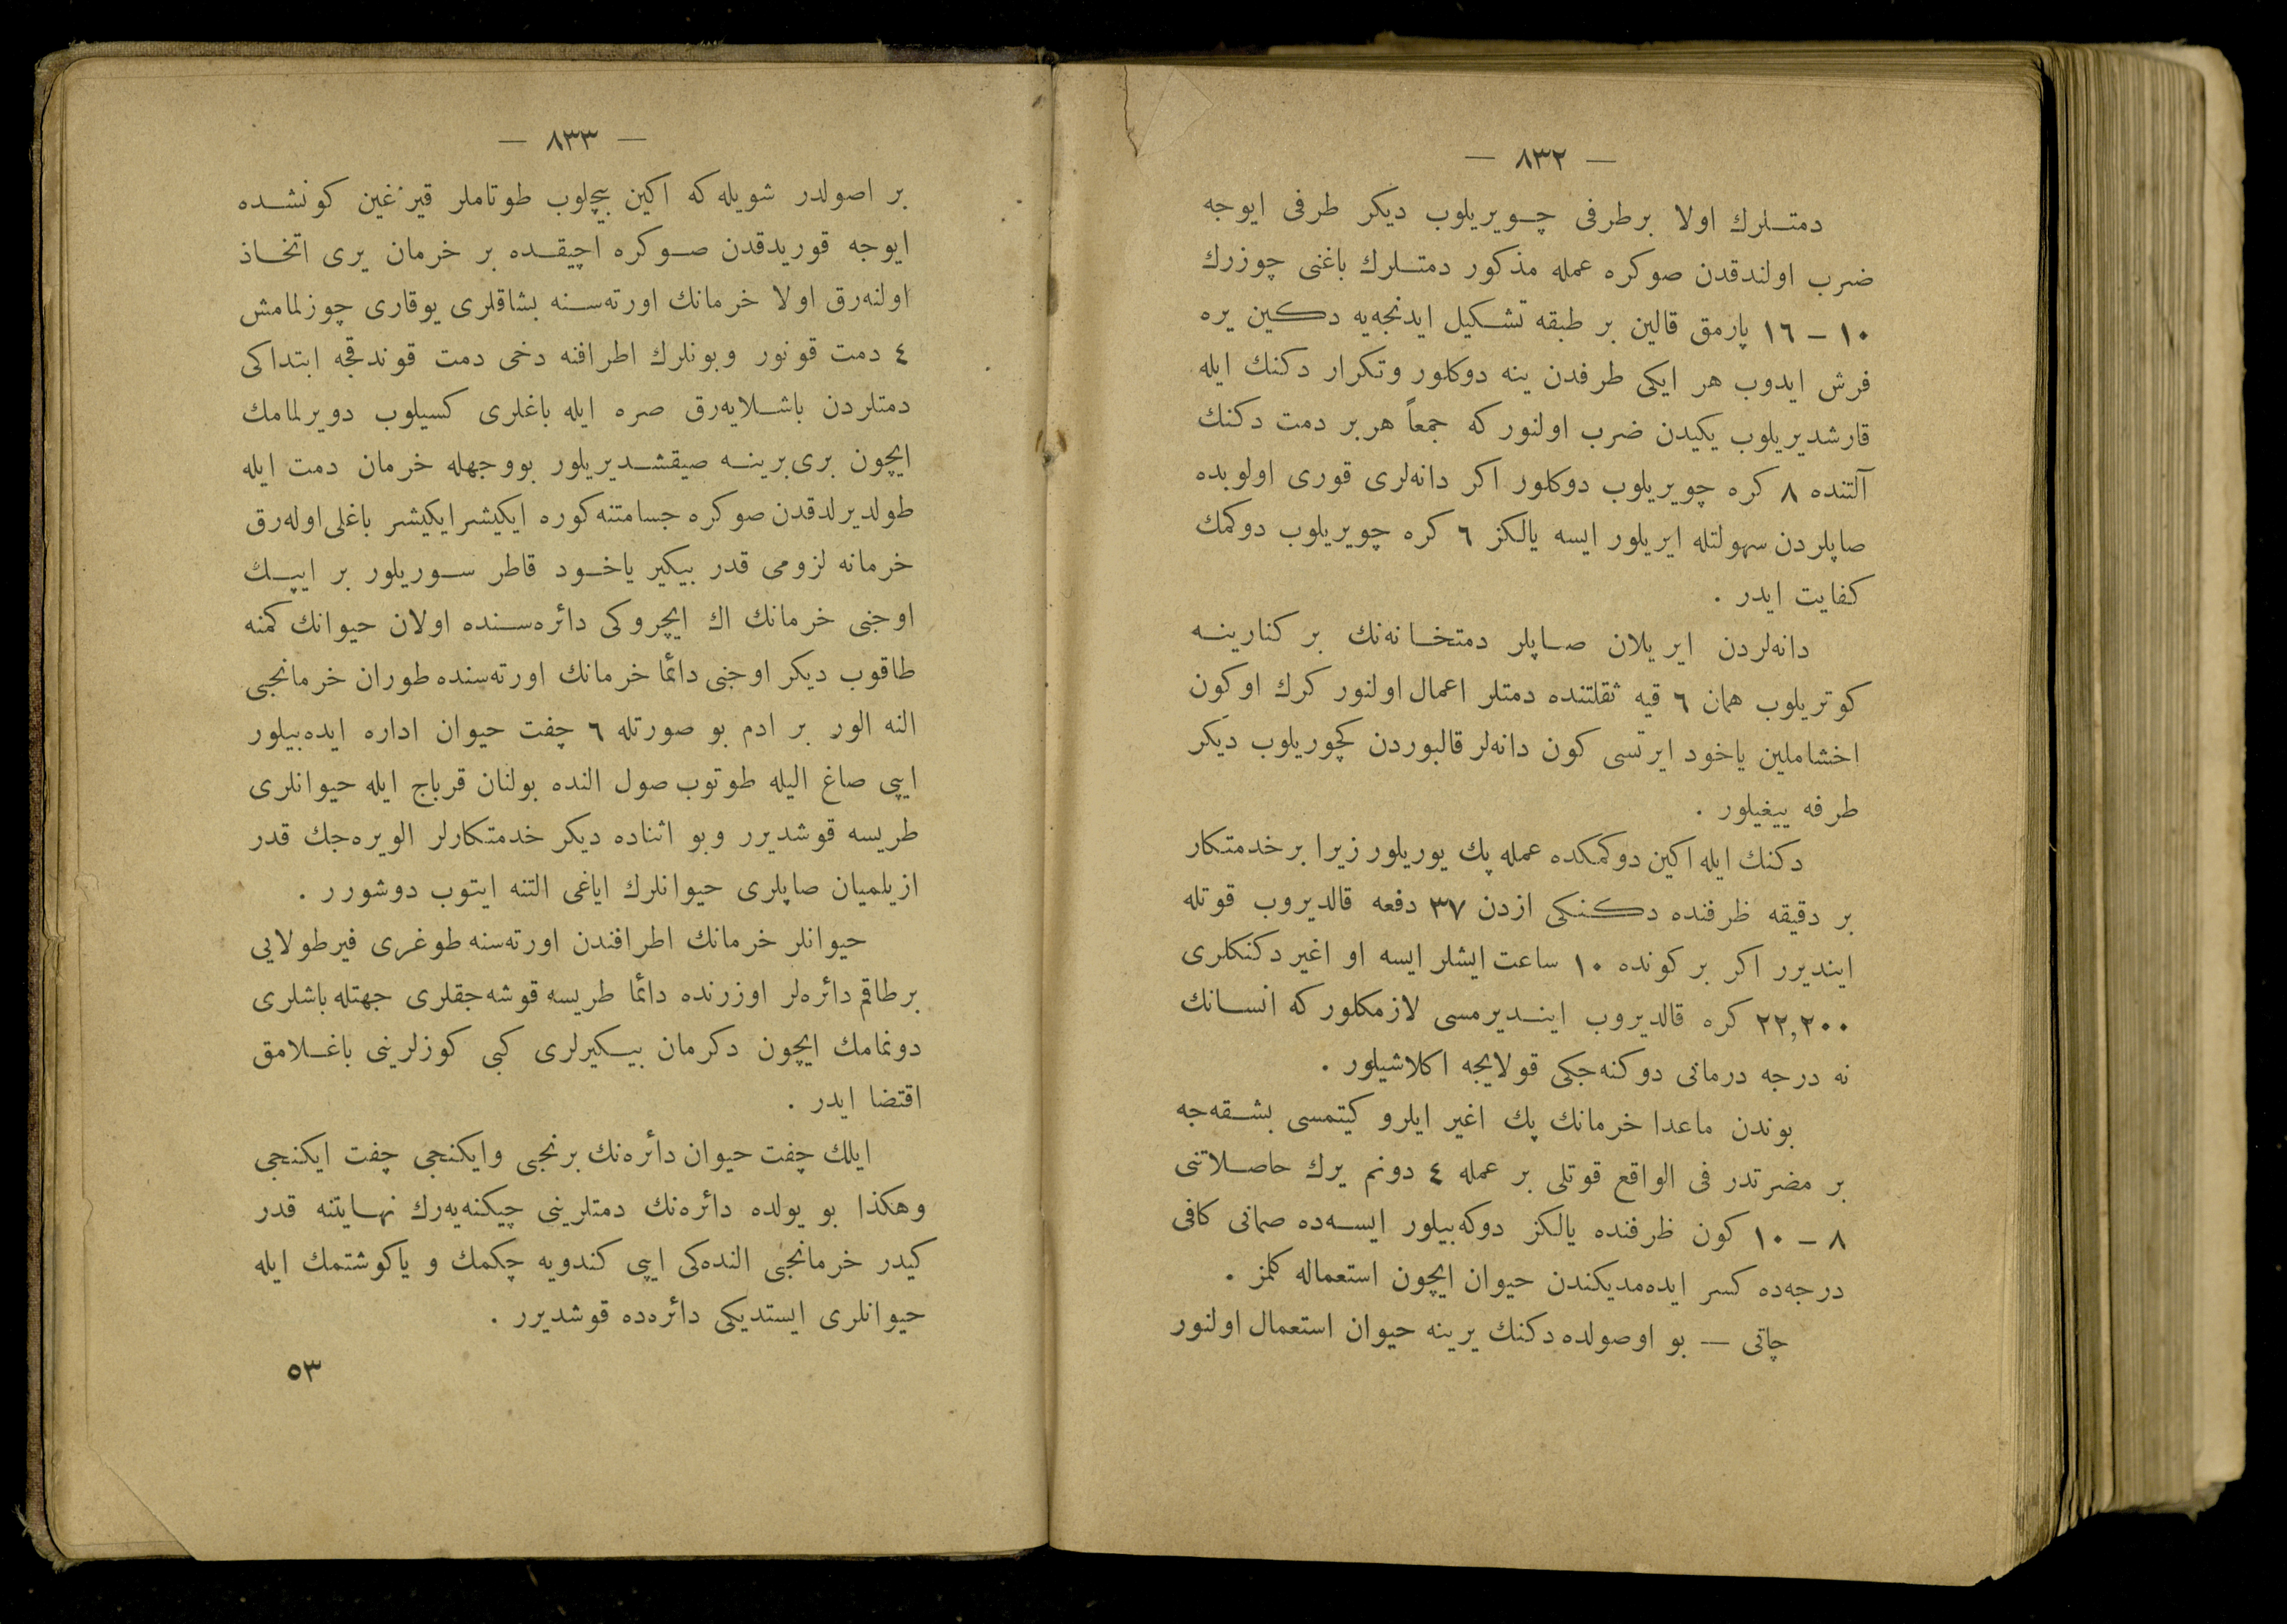 — ٨٣٢ —
دمتلرك اولا برطرفى چويريلوب ديكر طرفى ايوجه
ضرب اولندقدن صوكره عمله مذكور دمتلرك باغنى چوزرك
١٠ – ١٦ پارمق قالين بر طبقه تشكيل ايدنجه‌يه دكين يره
فرش ايدوب هر ايكى طرفدن ينه دوكلور وتكرار دكنك ايله
قارشديريلوب يكيدن ضرب اولنور كه جمعاً هر بر دمت دكنك
آلتنده ٨ كره چويريلوب دوكلور اكر دانه‌لرى قورى اولوبده
صاپلردن سهولتله ايريلور ايسه يالكز ٦ كره چويريلوب دوكمك
كفايت ايدر .
دانه‌لردن ايريلان صاپلر دمتخانه‌نك بر كنارينه
كوتريلوب همان ٦ قيه ثقلتنده دمتلر اعمال اولنور كرك اوكون
اخشاملين ياخود ايرتسى كون دانه‌لر قالبوردن كچوريلوب ديكر
طرفه ييغيلور .
دكنك ايله اكين دوكمكده عمله پك يوريلور زيرا بر خدمتكار
بر دقيقه ظرفنده دكنكى ازدن ٣٧ دفعه قالديروب قوتله
اينديرر اكر بر كونده ١٠ ساعت ايشلر ايسه او اغير دكنكلرى
٢٢,٢٠٠ كره قالديروب اينديرمسى لازمكلور كه انسانك
نه درجه درمانى دوكنه‌جكى قولايجه اكلاشيلور .
بوندن ماعدا خرمانك پك اغير ايلرو كيتمسى بشقه‌جه
بر مضرتدر فى الواقع قوتلى بر عمله ٤ دونم يرك حاصلاتنى
٨ – ١٠ كون ظرفنده يالكز دوكه‌بيلور ايسه‌ده صمانى كافى
درجه‌ده كسر ايده‌مديكندن حيوان ايچون استعماله كلمز .
چاتى — بو اوصولده دكنك يرينه حيوان استعمال اولنور
— ٨٣٣ —
بر اصولدر شويله كه اكين بيچلوب طوتاملر قيزغين كونشده
ايوجه قوريدقدن صوكره اچيقده بر خرمان يرى اتخاذ
اولنه‌رق اولا خرمانك اورته‌سنه بشاقلرى يوقارى چوزلمامش
٤ دمت قونور وبونلرك اطرافنه دخى دمت قوندقجه ابتداكى
دمتلردن باشلايه‌رق صره ايله باغلرى كسيلوب دويرلمامك
ايچون برى برينه صيقشديريلور بووجهله خرمان دمت ايله
طولديرلدقدن صوكره جسامتنه كوره ايكيشر ايكيشر باغلى اوله‌رق
خرمانه لزومى قدر بيكير ياخود قاطر سوريلور بر ايپك
اوجنى خرمانك اك ايچروكى دائره‌سنده اولان حيوانك كمنه
طاقوب ديكر اوجنى دائما خرمانك اورته‌سنده طوران خرمانجى
النه الور بر ادم بو صورتله ٦ چفت حيوان اداره ايده‌بيلور
ايپى صاغ اليله طوتوب صول النده بولنان قرباج ايله حيوانلرى
طريسه قوشديرر وبو اثناده ديكر خدمتكارلر الويره‌جك قدر
ازيلميان صاپلرى حيوانلرك اياغى التنه ايتوب دوشورر .
حيوانلر خرمانك اطرافندن اورته‌سنه طوغرى فيرطولايى
بر طاقم دائره‌لر اوزرنده دائما طريسه قوشه‌جقلرى جهتله باشلرى
دونمامك ايچون دكرمان بيكيرلرى كبى كوزلرينى باغلامق
اقتضا ايدر .
ايلك چفت حيوان دائره‌نك برنجى وايكنجى چفت ايكنجى
وهكذا بو يولده دائره‌نك دمتلرينى چيكنه‌يه‌رك نهايتنه قدر
كيدر خرمانجى النده‌كى ايپى كندويه چكمك و ياكوشتمك ايله
حيوانلرى ايستديكى دائره‌ده قوشديرر .
٥٣